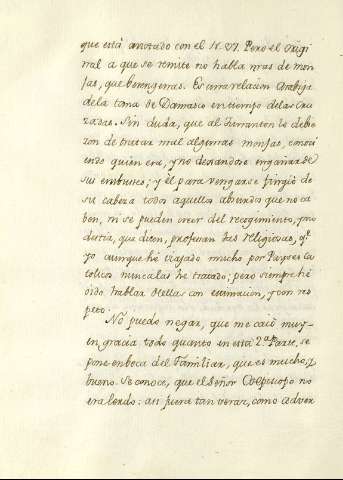 que està anotado con el N. VI. Pero el Origi
nal a que se remite no habla mas de mon
jas, que berengenas. Es una relacion Arabiga
de la toma de Damasco en tiempo de las Cru
zadas. Sin duda, que al Farranton le debie
ron de tratar mal algunas monjas, conoci
endo quien era, y no dexandose engañar de
sus embustes; y èl para vengarse fingiò de
su cabeza todos aquellos absurdos que no ca
ben, ni se pueden creer del recogimiento, mo
destia, que dicen, profesan las religiosas, qe.
yo aunque hè viajado mucho por Payses Ca
tolicos nunca las he tratado; pero siempre hè
oìdo hablar de ellas con estimacion, y con res
peto.
No puedo negar, que me caiò muy en
gracia todo quanto en està 2ª Parte, se
pone en boca del Familiar, que es mucho, y
bueno. Se conoce, que el Señor Obispo no
era lerdo: asi fuera tan veraz, como adver